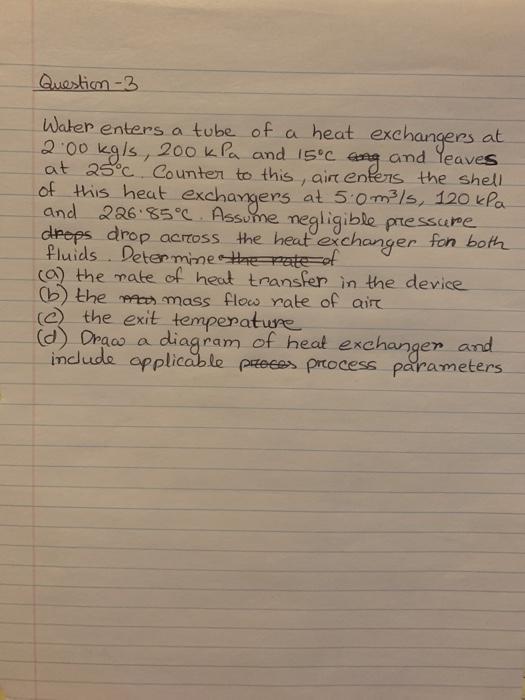 Question-3
Water enters a tube of a heat exchangers at
2.00 kg/s, 200 kPa and 15°C ang and leaves
at 25°C. Counter to this, air enters the shell
of this heat exchangers at 5.0 m³/s, 120 kPa
and 226.85°C. Assume negligible pressure
drops drop across the heat exchanger for both
fluids. Determine the rate of
(a) the rate of heat transfer in the device
(b) the mass flow rate of air
(c) the exit temperature
(d) Draw a diagram of heat exchanger and
include applicable proces process parameters